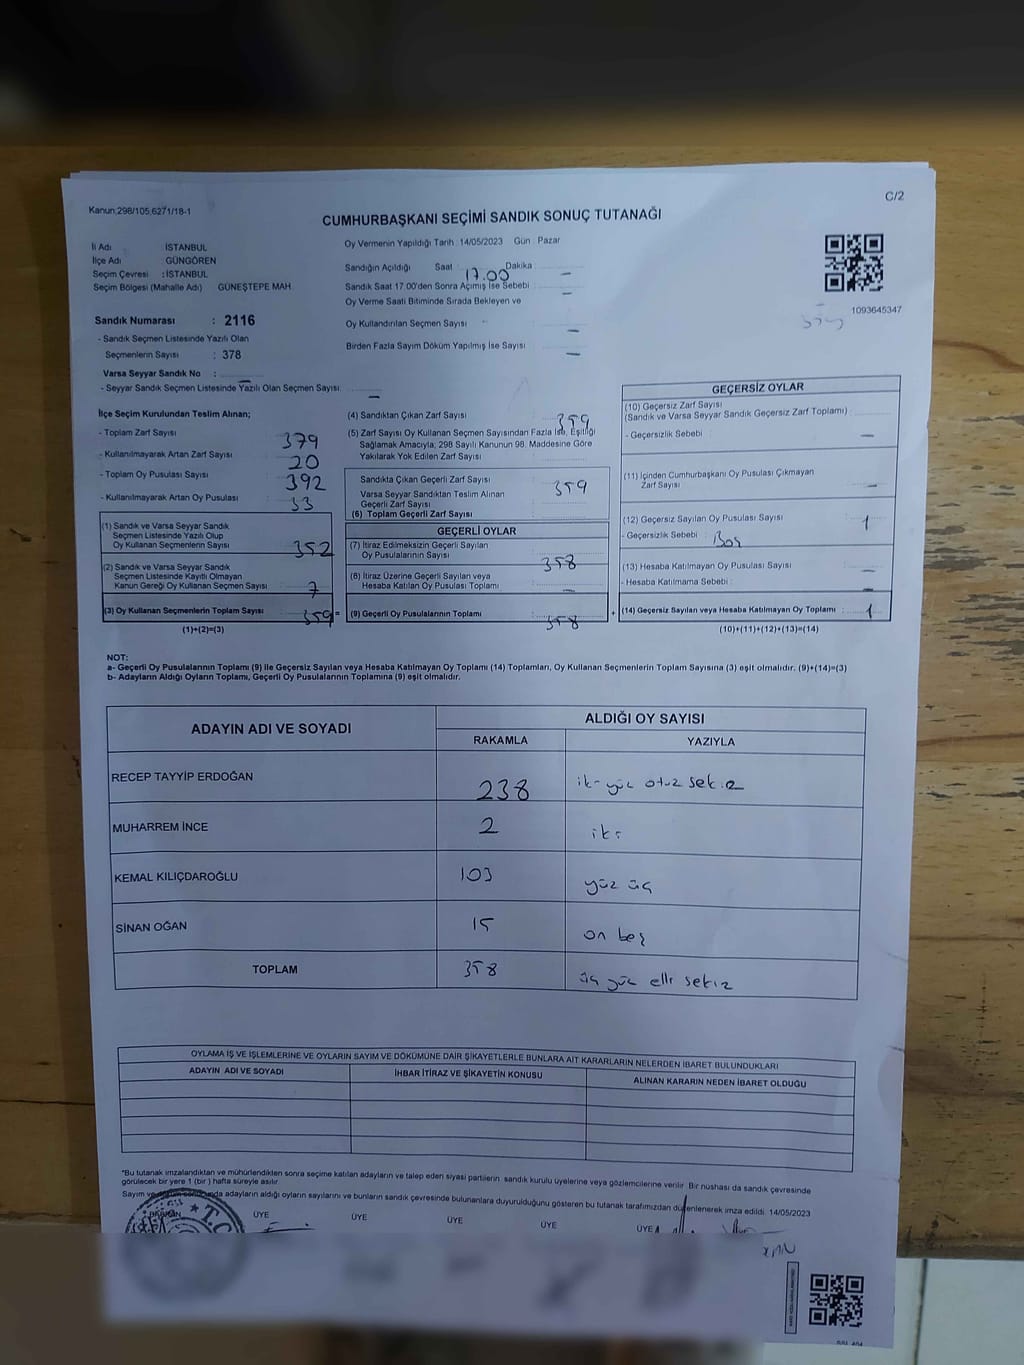 Kanun;298/105,6271/18-1
C/2
CUMHURBAŞKANI SEÇİMİ SANDIK SONUÇ TUTANAĞI
İl Adı İSTANBUL
İlçe Adı : GÜNGÖREN
Seçim Çevresi : İSTANBUL
Seçim Bölgesi (Mahalle Adı) GÜNEŞTEPE MAH.
Sandık Numarası : 2116
- Sandık Seçmen Listesinde Yazılı Olan
Seçmenlerin Sayısı : 378
Varsa Seyyar Sandık No :
- Seyyar Sandık Seçmen Listesinde Yazılı Olan Seçmen Sayısı: —
Oy Vermenin Yapıldığı Tarih :14/05/2023 Gün : Pazar
Sandığın Açıldığı Saat : 17.00 Dakika : —
Sandık Saat 17.00'den Sonra Açımış İse Sebebi : —
Oy Verme Saati Bitiminde Sırada Bekleyen ve
Oy Kullandırılan Seçmen Sayısı : —
Birden Fazla Sayım Döküm Yapılmış İse Sayısı : —
1093645347
İlçe Seçim Kurulundan Teslim Alınan;
- Toplam Zarf Sayısı 379
- Kullanılmayarak Artan Zarf Sayısı 20
- Toplam Oy Pusulası Sayısı 392
- Kullanılmayarak Artan Oy Pusulası 33
(1) Sandık ve Varsa Seyyar Sandık
Seçmen Listesinde Yazılı Olup
Oy Kullanan Seçmenlerin Sayısı 352
(2) Sandık ve Varsa Seyyar Sandık
Seçmen Listesinde Kayıtlı Olmayan
Kanun Gereği Oy Kullanan Seçmen Sayısı 7
(3) Oy Kullanan Seçmenlerin Toplam Sayısı 359 =
(1)+(2)=(3)
(4) Sandıktan Çıkan Zarf Sayısı 359
(5) Zarf Sayısı Oy Kullanan Seçmen Sayısından Fazla İse, Eşitliği
Sağlamak Amacıyla; 298 Sayılı Kanunun 98. Maddesine Göre
Yakılarak Yok Edilen Zarf Sayısı
Sandıkta Çıkan Geçerli Zarf Sayısı 359
Varsa Seyyar Sandıktan Teslim Alınan
Geçerli Zarf Sayısı
(6) Toplam Geçerli Zarf Sayısı
GEÇERLİ OYLAR
(7) İtiraz Edilmeksizin Geçerli Sayılan
Oy Pusulalarının Sayısı : 358
(8) İtiraz Üzerine Geçerli Sayılan veya
Hesaba Katılan Oy Pusulası Toplamı : —
(9) Geçerli Oy Pusulalarının Toplamı : 358 +
GEÇERSİZ OYLAR
(10) Geçersiz Zarf Sayısı
(Sandık ve Varsa Seyyar Sandık Geçersiz Zarf Toplamı) :
- Geçersizlik Sebebi : —
(11) İçinden Cumhurbaşkanı Oy Pusulası Çıkmayan
Zarf Sayısı —
(12) Geçersiz Sayılan Oy Pusulası Sayısı : 1
- Geçersizlik Sebebi : Boş
(13) Hesaba Katılmayan Oy Pusulası Sayısı : —
- Hesaba Katılmama Sebebi : —
(14) Geçersiz Sayılan veya Hesaba Katılmayan Oy Toplamı : 1
(10)+(11)+(12)+(13)=(14)
NOT:
a- Geçerli Oy Pusulalarının Toplamı (9) ile Geçersiz Sayılan veya Hesaba Katılmayan Oy Toplamı (14) Toplamları, Oy Kullanan Seçmenlerin Toplam Sayısına (3) eşit olmalıdır. (9)+(14)=(3)
b- Adayların Aldığı Oyların Toplamı, Geçerli Oy Pusulalarının Toplamına (9) eşit olmalıdır.
ADAYIN ADI VE SOYADI
ALDIĞI OY SAYISI
RAKAMLA YAZIYLA
RECEP TAYYİP ERDOĞAN 238 iki yüz otuz sekiz
MUHARREM İNCE 2 iki
KEMAL KILIÇDAROĞLU 103 yüz üç
SİNAN OĞAN 15 on beş
TOPLAM 358 üç yüz elli sekiz
OYLAMA İŞ VE İŞLEMLERİNE VE OYLARIN SAYIM VE DÖKÜMÜNE DAİR ŞİKAYETLERLE BUNLARA AİT KARARLARIN NELERDEN İBARET BULUNDUKLARI
ADAYIN ADI VE SOYADI İHBAR İTİRAZ VE ŞİKAYETİN KONUSU ALINAN KARARIN NEDEN İBARET OLDUĞU
*Bu tutanak imzalandıktan ve mühürlendikten sonra seçime katılan adayların ve talep eden siyasi partilerin sandık kurulu üyelerine veya gözlemcilerine verilir. Bir nüshası da sandık çevresinde
görülecek bir yere 1 (bir) hafta süreyle asılır.
adayların aldığı oyların sayılarını ve bunların sandık çevresinde bulunanlara duyurulduğunu gösteren bu tutanak tarafımızdan düzenlenerek imza edildi. 14/05/2023
BAŞKAN ÜYE ÜYE ÜYE ÜYE ÜYE
T.C.